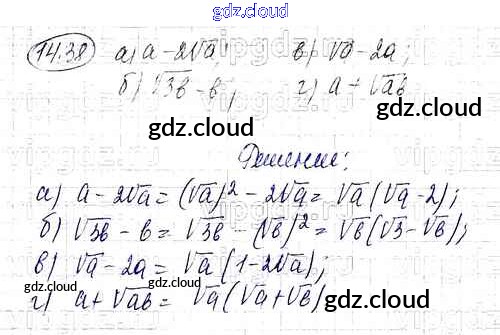 gdz.cloud
14.38 а) a - 2√a; в) √a - 2a;
б) √3b - b; г) a + √ab
gdz.cloud
gdz.cloud
Решение:
а) a - 2√a = (√a)² - 2√a = √a(√a - 2);
б) √3b - b = √3b - (√b)² = √b(√3 - √b);
в) √a - 2a = √a(1 - 2√a);
gdz.cloud gdz.cloud
г) a + √ab = √a(√a + √b)
gdz.cloud